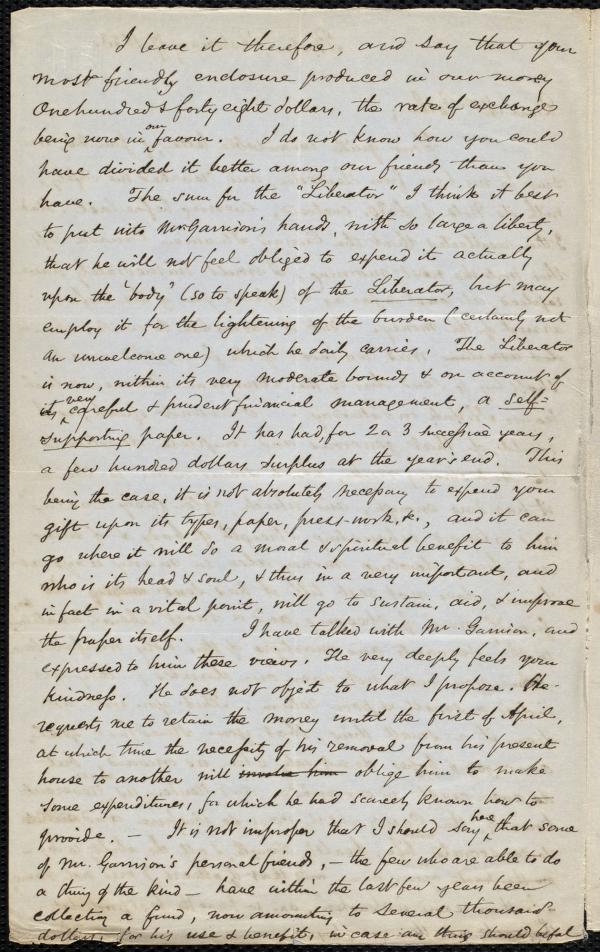 I leave it therefore, and say that your
most friendly enclosure produced in our money
One hundred & forty eight dollars, the rate of exchange
being now in our favour. I do not know how you could
have divided it better among our friends than you
have. The sum for the "Liberator" I think it best
to put into Mr Garrison's hands, with so large a liberty,
that he will not feel obliged to expend it actually
upon the "body" (so to speak) of the Liberator, but may
employ it for the lightening of the burden (certainly not
an unwelcome one) which he daily carries. The Liberator
is now, within its very moderate bounds & on account of
its very careful & prudent financial management, a self-
supporting paper. It has had, for 2 or 3 successive years,
a few hundred dollars surplus at the year's end. This
being the case, it is not absolutely necessary to expend your
gift upon its types, paper, press-work, &c., and it can
go where it will do a moral & spiritual benefit to him
who is its head & soul, & thus in a very important, and
in fact in a vital point, will go to sustain, aid, & improve
the paper itself. I have talked with Mr. Garrison, and
expressed to him these views. He very deeply feels your
kindness. He does not object to what I propose. He
requests me to retain the money until the first of April,
at which time the necessity of his removal from his present
house to another will involve him oblige him to make
some expenditures, for which he had scarcely known how to
provide. – It is not improper that I should say here that some
of Mr. Garrison's personal friends, – the few who are able to do
a thing of the kind – have within the last few years been
collecting a fund, now amounting to several thousand
dollars, for his use & benefit, in case any thing should befal